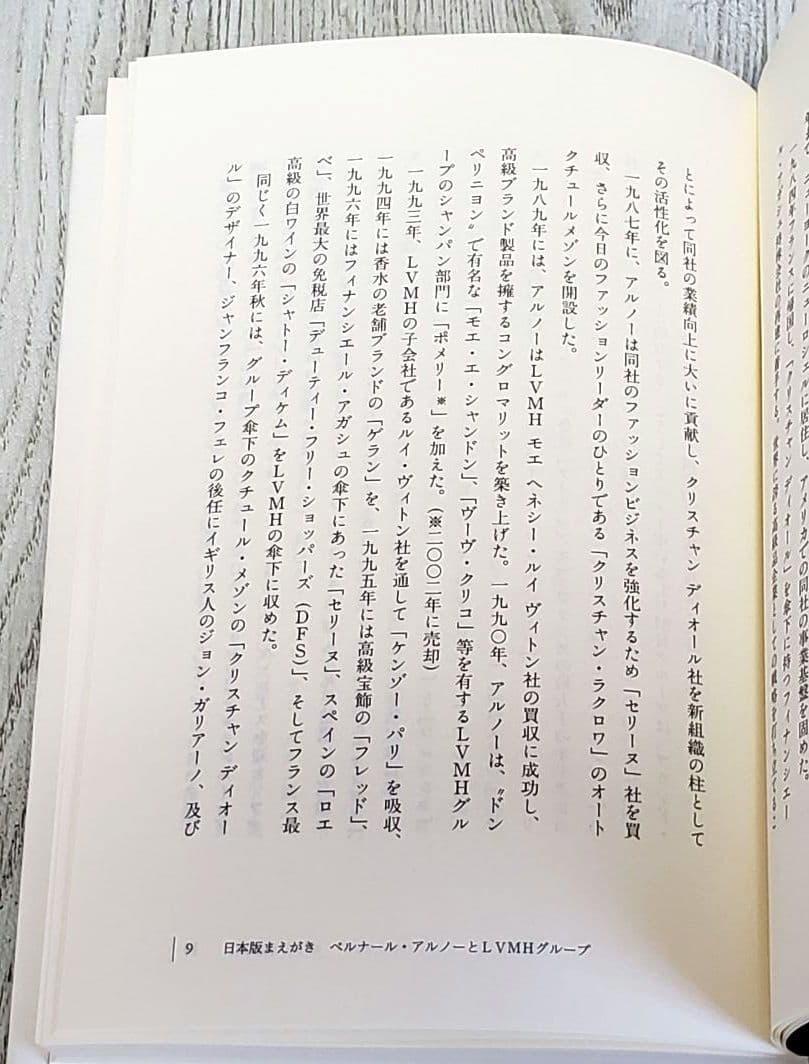 とによって同社の業績向上に大いに貢献し、クリスチャン ディオール社を新組織の柱として
その活性化を図る。
一九八七年に、アルノーは同社のファッションビジネスを強化するため「セリーヌ」社を買
収、さらに今日のファッションリーダーのひとりである「クリスチャン・ラクロワ」のオート
クチュールメゾンを開設した。
一九八九年には、アルノーはLVMH モエ ヘネシー・ルイ ヴィトン社の買収に成功し、
高級ブランド製品を擁するコングロマリットを築き上げた。一九九〇年、アルノーは、〝ドン
ペリニヨン〟で有名な「モエ・エ・シャンドン」、「ヴーヴ・クリコ」等を有するLVMHグル
ープのシャンパン部門に「ポメリー※」を加えた。(※二〇〇二年に売却)
一九九三年、LVMHの子会社であるルイ・ヴィトン社を通して「ケンゾー・パリ」を吸収、
一九九四年には香水の老舗ブランドの「ゲラン」を、一九九五年には高級宝飾の「フレッド」、
一九九六年にはフィナンシエール・アガシュの傘下にあった「セリーヌ」、スペインの「ロエ
べ」、世界最大の免税店「デューティー・フリー・ショッパーズ(DFS)」、そしてフランス最
高級の白ワインの「シャトー・ディケム」をLVMHの傘下に収めた。
同じく一九九六年秋には、グループ傘下のクチュール・メゾンの「クリスチャン ディオー
ル」のデザイナー、ジャンフランコ・フェレの後任にイギリス人のジョン・ガリアーノ、及び
9 日本版まえがき ベルナール・アルノーとLVMHグループ